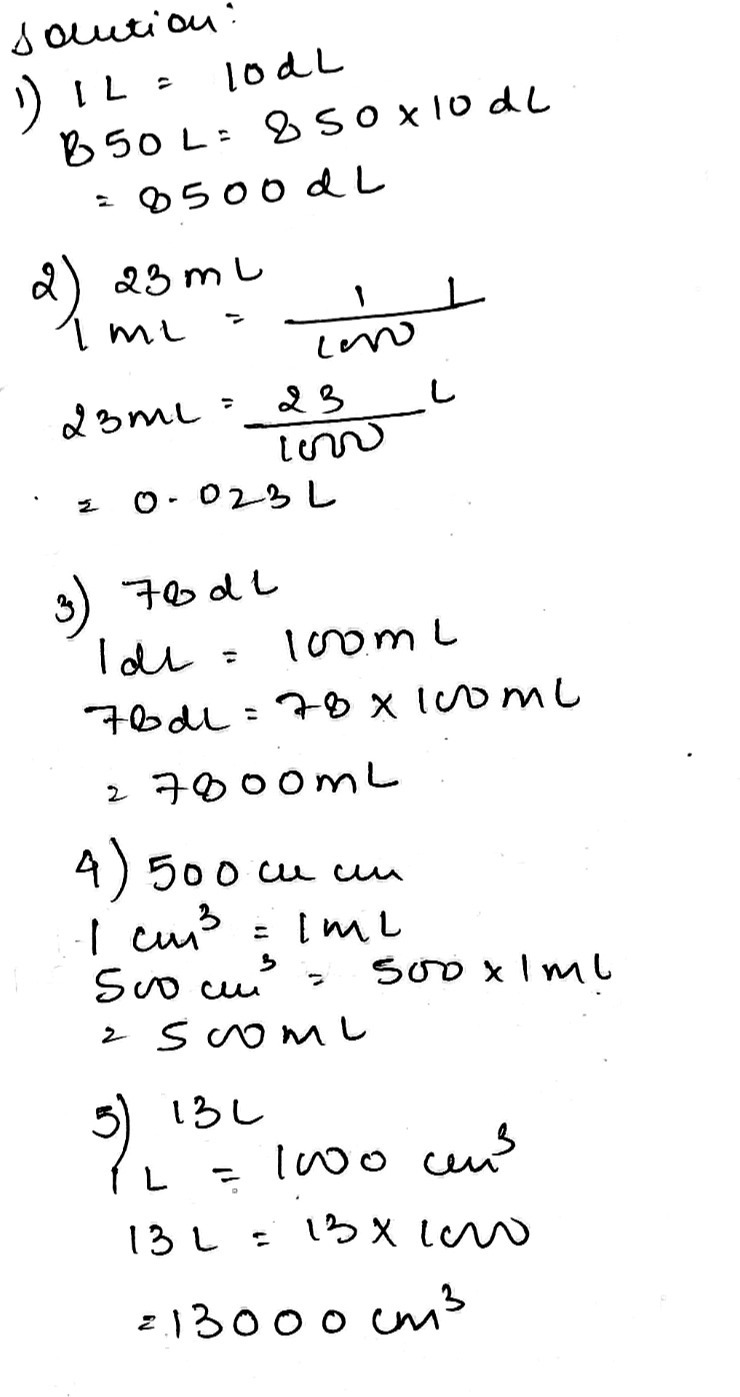 Solution:
1) 1L = 10dL
850L = 850 x 10 dL
= 8500 dL
2) 23mL
1 mL = 1/1000 L
23mL = 23/1000 L
= 0.023L
3) 78dL
1dL = 100mL
78dL = 78 x 100mL
= 7800mL
4) 500 cu cm
1 cm³ = 1mL
500 cm³ = 500 x 1mL
= 500mL
5) 13L
1L = 1000 cm³
13L = 13 x 1000
= 13000 cm³